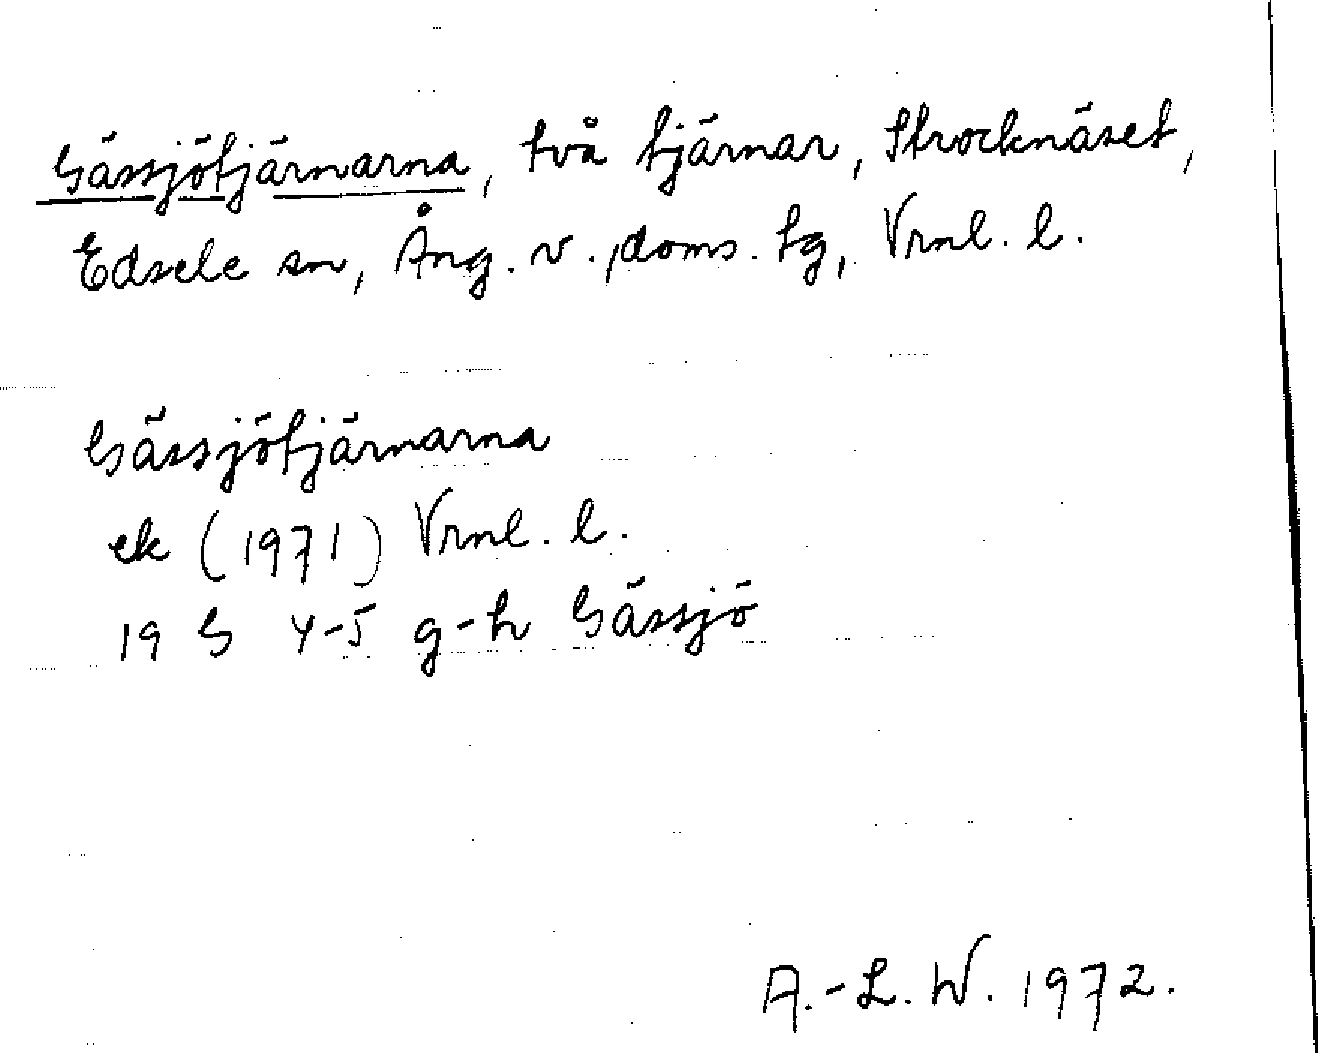 Gässjötjärnarna, två tjärnar, Strocknäset,
Edsele sn, Ång. v. doms. tg, Vrnl. l.
Gässjötjärnarna
ek (1971) Vrnl. l.
19 G 4-5 g-h Gässjö
A.-L. W. 1972.